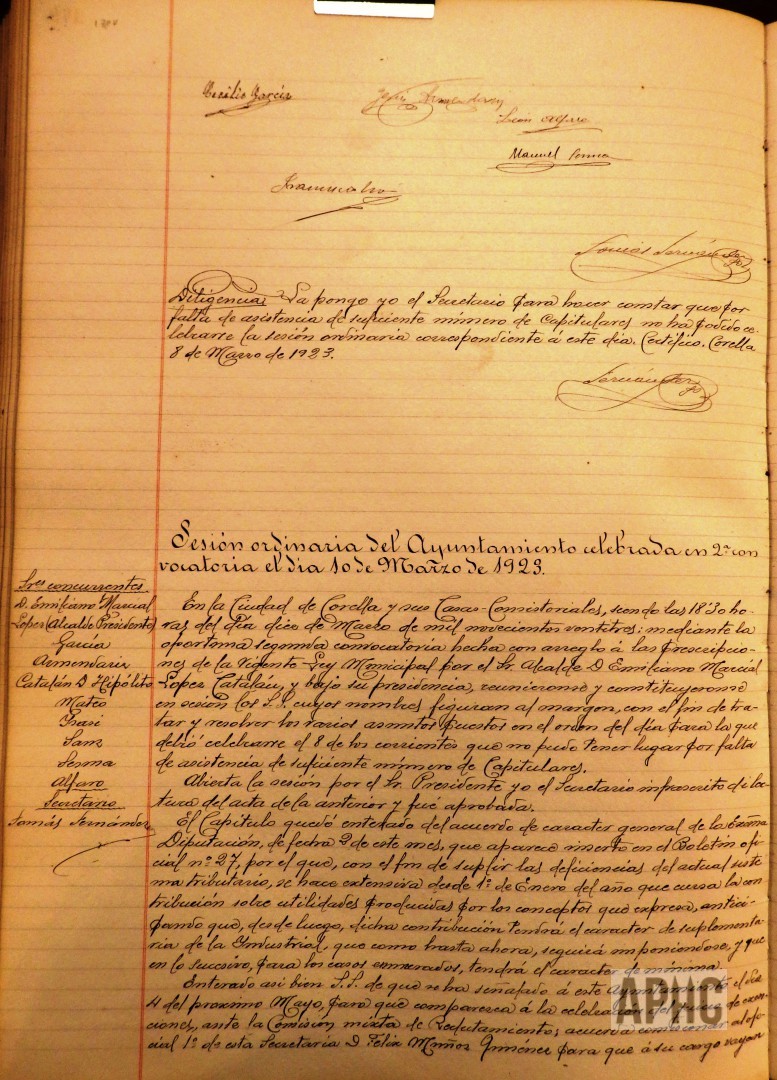 Cecilio García
Jesús Armendariz
León Alfaro
Manuel Sesma
Francisco
Tomás Fernández
Diligencia. La pongo yo el Secretario para hacer constar que por
falta de asistencia de suficiente número de Capitulares no ha podido ce-
lebrarse la sesión ordinaria correspondiente á este día. Certifico. Corella
8 de Marzo de 1923.
Fernández
Sesión ordinaria del Ayuntamiento celebrada en 2ª con
vocatoria el día 10 de Marzo de 1923.
Sres concurrentes.
D. Emiliano Marcial
Lopez (Alcalde Presidente)
García
Armendariz
Catalán D. Hipólito
Mateo
Sanz
Sesma
Alfaro
Secretario
Tomás Fernández
En la Ciudad de Corella y sus Casas-Consistoriales, siendo las 18'30 ho-
ras del día diez de Marzo de mil novecientos veintitres: mediante la
oportuna segunda convocatoria hecha con arreglo á las prescripcio-
nes de la vigente Ley Municipal por el Sr. Alcalde D. Emiliano Marcial
Lopez Catalán, y bajo su presidencia, reunieronse y constituyeronse
en sesión los S.S. cuyos nombres figuran al margen, con el fin de tra-
tar y resolver los varios asuntos puestos en el orden del día para la que
debió celebrarse el 8 de los corrientes que no pudo tener lugar por falta
de asistencia de suficiente número de Capitulares.
Abierta la sesión por el Sr. Presidente yo el Secretario infrascrito dí lec-
tura del acta de la anterior y fué aprobada.
El Capítulo quedó enterado del acuerdo de caracter general de la Excma
Diputación, de fecha 2 de este mes, que aparece inserto en el Boletín ofi-
cial nº 27, por el que, con el fin de suplir las deficiencias del actual siste
ma tributario, se hace extensiva desde 1º de Enero del año que cursa la con
tribución sobre utilidades producidas por los conceptos que expresa, antici-
pando que, desde luego, dicha contribución tendrá el caracter de suplementa-
ria de la Industrial, que como hasta ahora, seguirá imponiendose, y que
en lo sucesivo, para los casos enumerados, tendrá el caracter de mínima.
Enterado asi bien S.S. de que se ha señalado á este Ayuntamiento el día
4 del proximo Mayo, para que comparezca á la celebración del juicio de exen-
ciones, ante la Comisión mixta de Reclutamiento; acuerda comisionar al ofi-
cial 1º de esta Secretaría D. Felix Muñoz Giménez para que á su cargo vayan
APHC